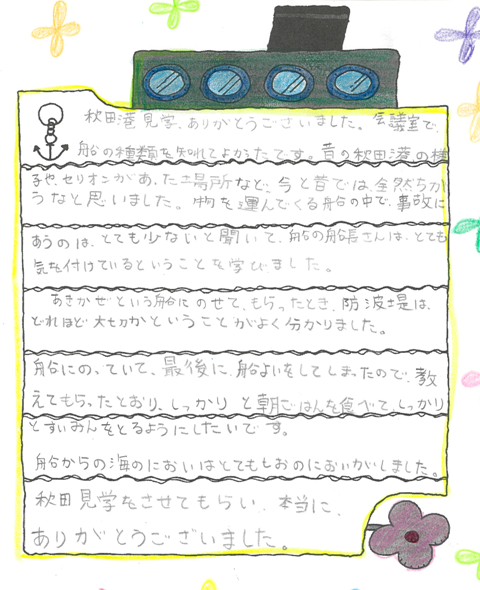 秋田港見学、ありがとうございました。会議室で、
船の種類を知れてよかったです。昔の秋田港の様
子や、セリオンがあった場所など、今と昔では、全然ちが
うなと思いました。物を運んでくる船の中で、事故に
あうのは、とても少ないと聞いて、船の船長さんは、とても
気を付けているということを学びました。
あきかぜという船にのせて、もらったとき、防波堤は、
どれほど大切かということがよく分かりました。
船にのっていて、最後に、船よいをしてしまったので、教
えてもらったとおり、しっかりと朝ごはんを食べて、しっかり
とすいみんをとるようにしたいです。
船からの海のにおいはとてもしおのにおいがしました。
秋田見学をさせてもらい、本当に、
ありがとうございました。